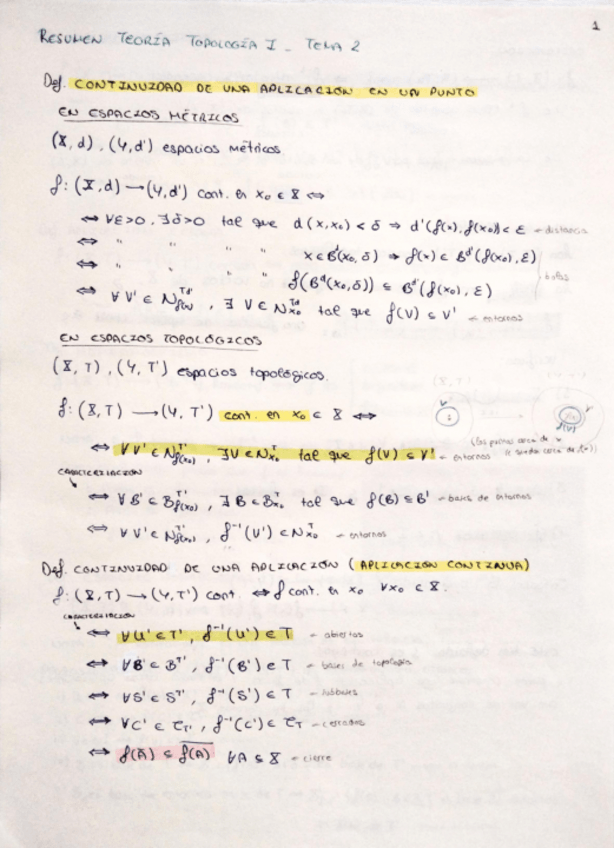 1
RESUMEN TEORÍA TOPOLOGÍA I - TEMA 2
Def. CONTINUIDAD DE UNA APLICACIÓN EN UN PUNTO
EN ESPACIOS MÉTRICOS
(X, d), (Y, d') espacios métricos.
f: (X, d) → (Y, d') cont. en x₀ ∈ X ⇔
⇔ ∀ε>0, ∃δ>0 tal que d(x, x₀) < δ ⇒ d'(f(x), f(x₀)) < ε - distancia
⇔ " " " " x ∈ Bᵈ(x₀, δ) ⇒ f(x) ∈ Bᵈ'(f(x₀), ε)
⇔ " " " " f(Bᵈ(x₀, δ)) ⊆ Bᵈ'(f(x₀), ε) bolas
⇔ ∀ V' ∈ N_{f(x₀)}^{Td'}, ∃ V ∈ N_{x₀}^{Td} tal que f(V) ⊆ V' - entornos
EN ESPACIOS TOPOLÓGICOS
(X, T), (Y, T') espacios topológicos.
f: (X, T) → (Y, T') cont. en x₀ ∈ X ⇔
⇔ ∀ V' ∈ N_{f(x₀)}^{T'}, ∃ V ∈ N_{x₀}^{T} tal que f(V) ⊆ V' - entornos
(los puntos cerca de x
CARACTERIZACIÓN
⇔ ∀ B' ∈ B_{f(x₀)}^{T'}, ∃ B ∈ B_{x₀}^{T} tal que f(B) ⊆ B' - bases de entornos
⇔ ∀ V' ∈ N_{f(x₀)}^{T'}, f⁻¹(V') ∈ N_{x₀}^{T} - entornos
Def. CONTINUIDAD DE UNA APLICACIÓN (APLICACIÓN CONTINUA)
f: (X, T) → (Y, T') cont. ⇔ f cont. en x₀ ∀x₀ ∈ X.
CARACTERIZACIÓN
⇔ ∀ U' ∈ T', f⁻¹(U') ∈ T - abiertos
⇔ ∀ B' ∈ B^{T'}, f⁻¹(B') ∈ T - bases de topología
⇔ ∀ S' ∈ S^{T'}, f⁻¹(S') ∈ T - subbases
⇔ ∀ C' ∈ C_{T'}, f⁻¹(C') ∈ C_T - cerrados
⇔ f(A̅) ⊆ \overline{f(A)} ∀A ⊆ X - cierre